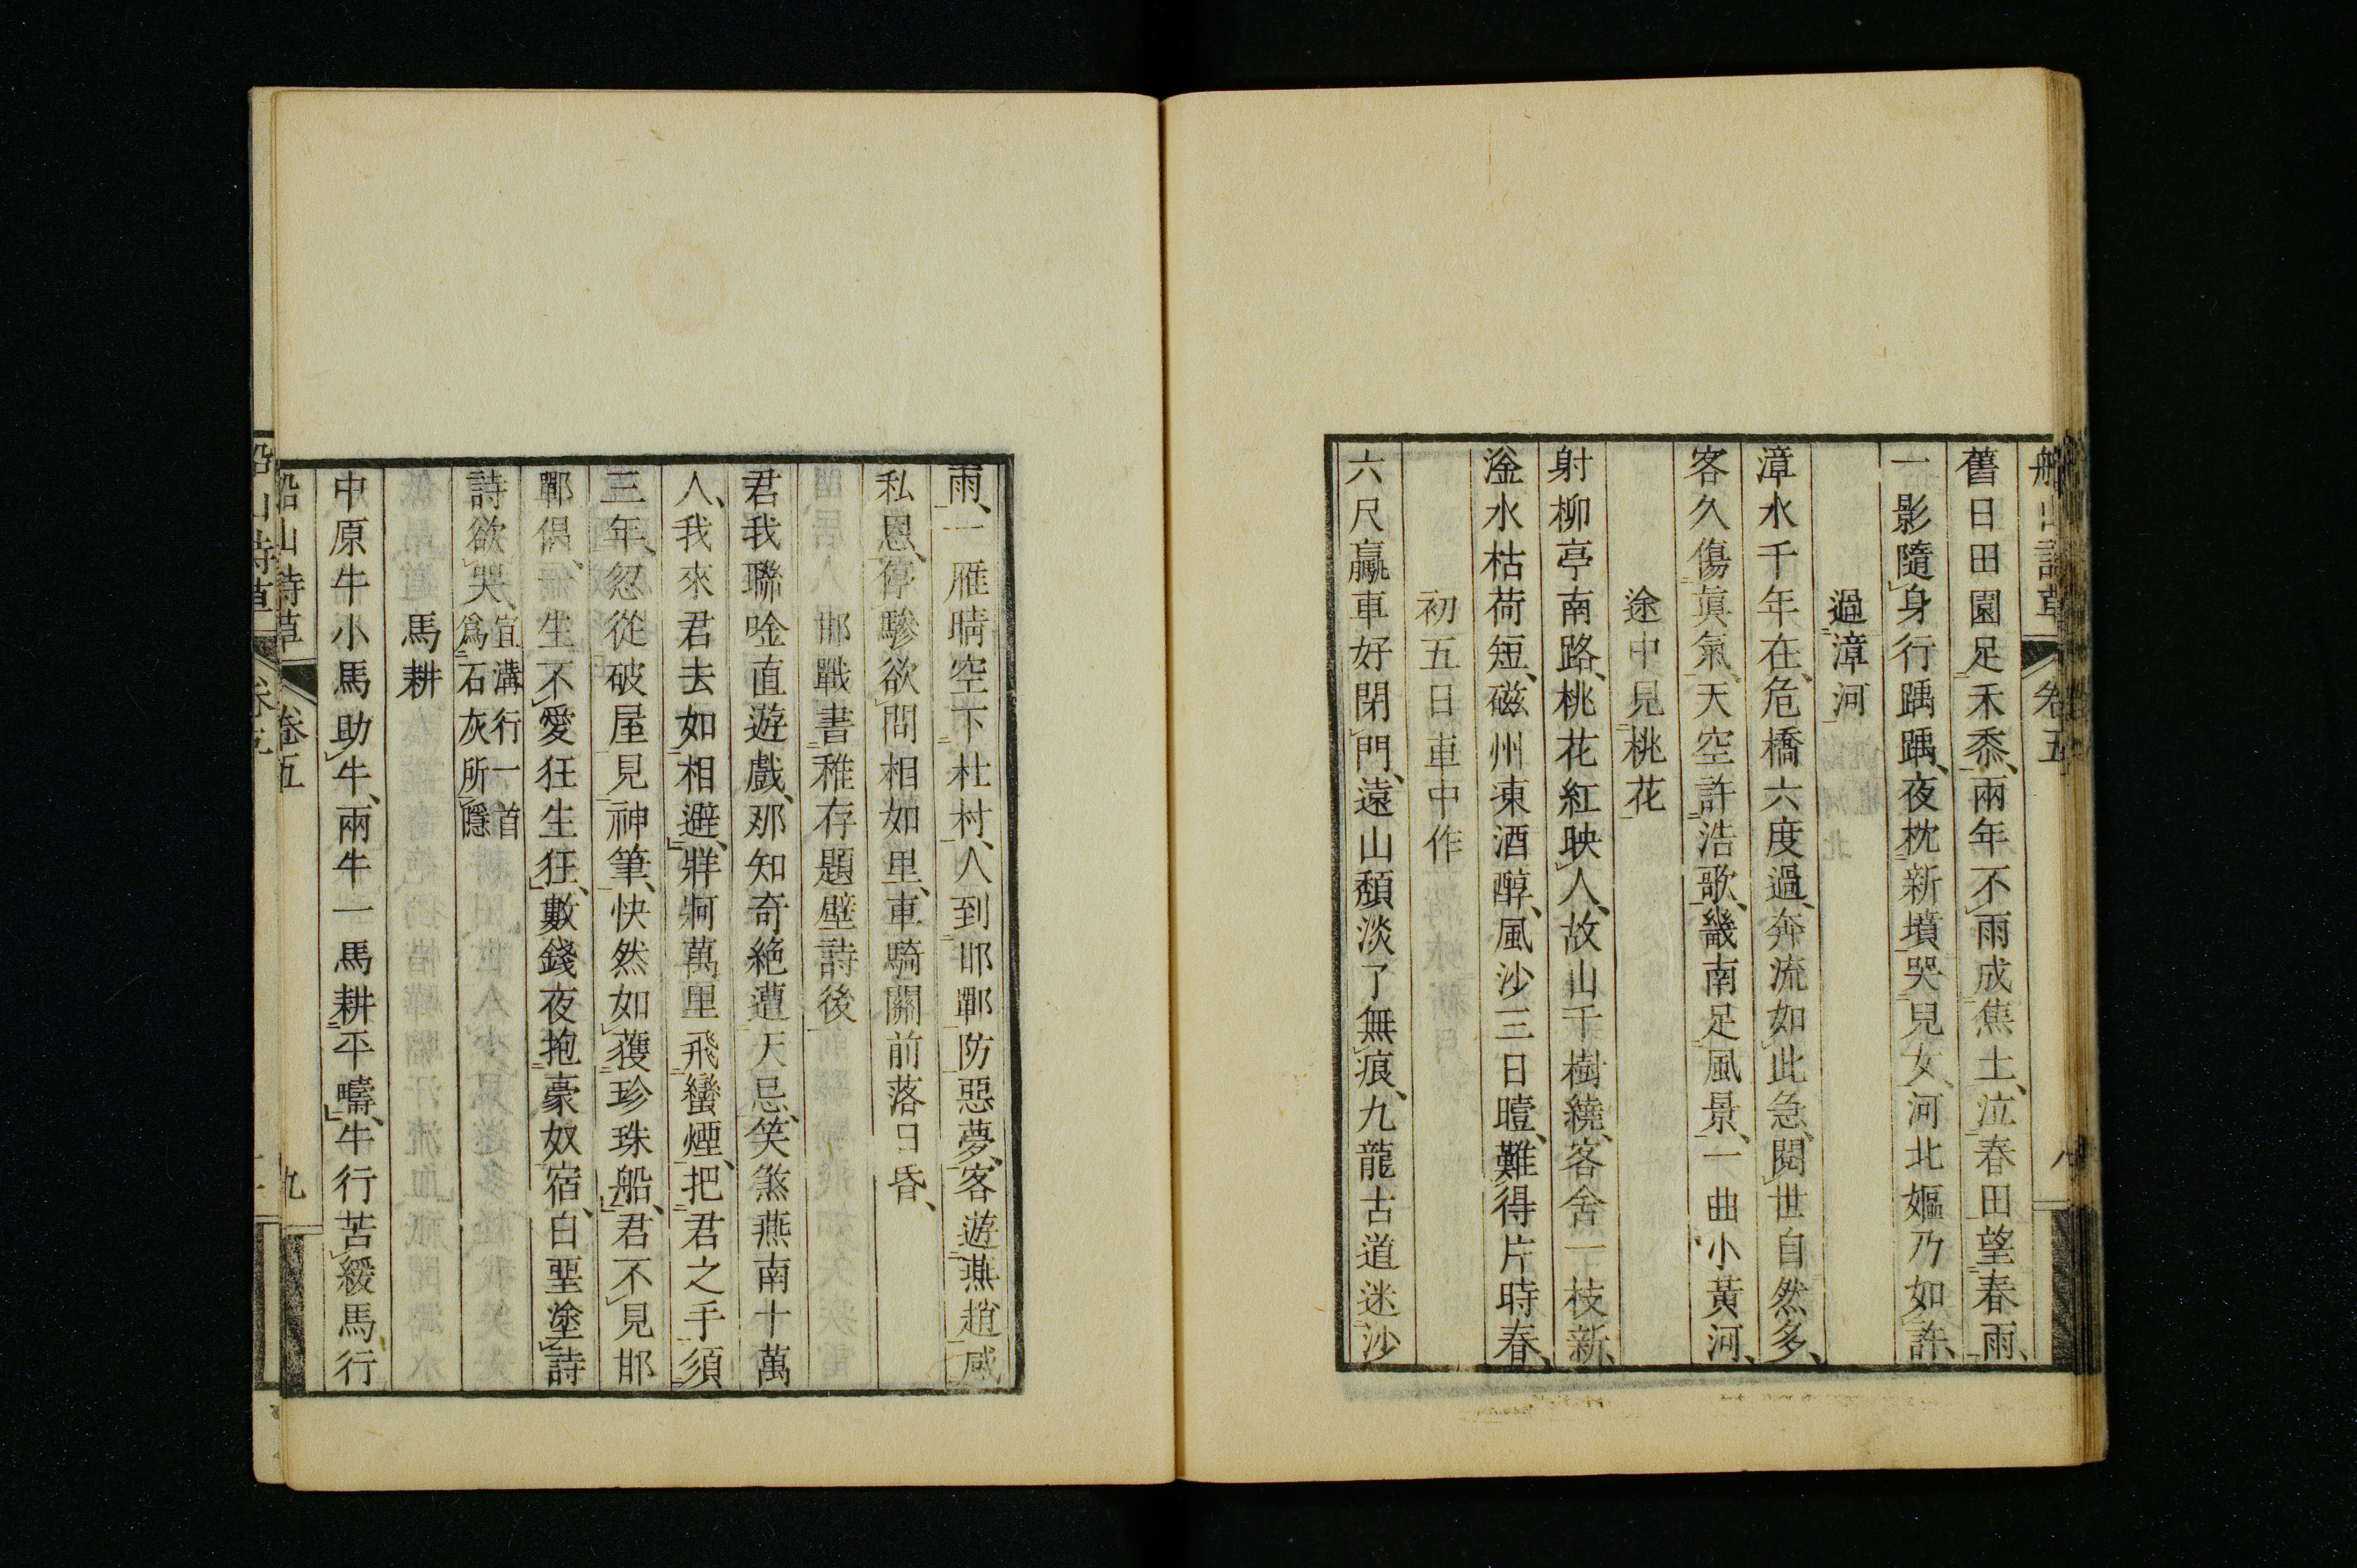 船山詩草 卷五 八
舊日田園足禾黍、兩年不雨成焦土、泣春田望春雨、
一影隨身行踽踽、夜枕新墳哭兒女、河北嫗乃如許、
過漳河
漳水千年在、危橋六度過、奔流如此急、閱世自然多、
客久傷眞氣、天空許浩歌、畿南足風景、一曲小黃河、
途中見桃花
射柳亭南路、桃花紅映人、故山千樹繞、客舍一枝新、
滏水枯荷短、磁州東酒醇、風沙三日曀、難得片時春、
初五日車中作
六尺羸車好閉門、遠山頹淡了無痕、九龍古道迷沙
雨、一雁晴空下杜村、人到邯鄲防惡夢、客遊燕趙感
私恩、停驂欲問相如里、車騎關前落日昏、
邯戰書稚存題壁詩後
君我聯唫直遊戲、那知奇絶遭天忌、笑煞燕南十萬
人、我來君去如相避、牂牁萬里飛蠻煙、把君之手須
三年、忽從破屋見神筆、快然如獲珍珠船、君不見邯
鄲倡、儷生不愛狂生狂、數錢夜抱豪奴宿、白堊塗詩
詩欲哭、宜溝行一首
爲石灰所隱
馬耕
中原牛小馬助牛、兩牛一馬耕平疇、牛行苦緩馬行
船山詩草 卷五 九